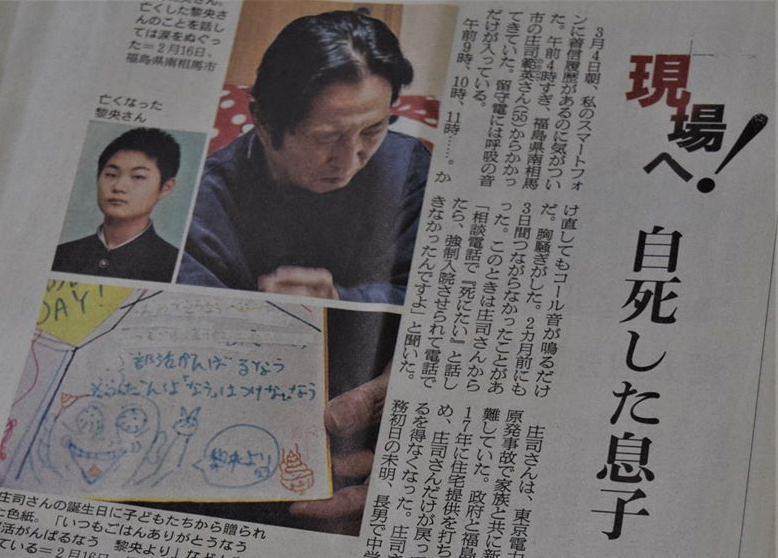 現場へ!
自死した息子
3月4日朝、私のスマートフォ
ンに着信履歴があるのに気がつい
た。午前4時すぎ、福島県南相馬
市の庄司範英さん(55)からかかっ
てきていた。留守電には呼吸の音
だけが入っている。
午前9時、10時、11時……。か
け直してもコール音が鳴るだけ
だ。胸騒ぎがした。2カ月前にも
3日間つながらなかったことがあ
った。このときは庄司さんから
「相談電話で『死にたい』と話し
たら、強制入院させられて電話で
きなかったんですよ」と聞いた。
庄司さんは、東京電力
原発事故で家族と共に新
難していた。政府と福島
17年に住宅提供を打ち
め、庄司さんだけが戻っ
るを得なくなった。庄司さ
務初日の未明、長男で中学
亡くした黎央さ
んのことを話し
ては涙をぬぐっ
た=2月16日、
福島県南相馬市
亡くなった
黎央さん
DAY!
部活がんばるなう
黎央より
庄司さんの誕生日に子どもたちから贈られ
た色紙。「いつもごはんありがとうなう
部活がんばるなう 黎央より」など
ている=2月16日